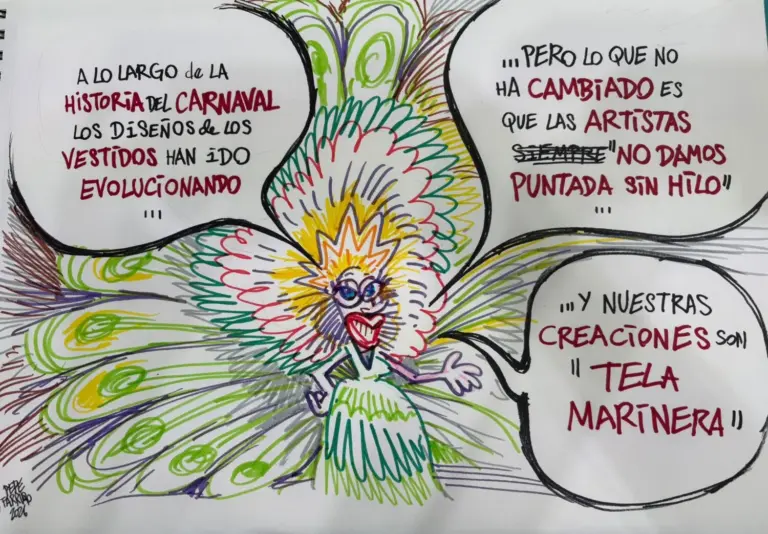 A LO LARGO de LA
HISTORIA DEL CARNAVAL
LOS DISEÑOS de LOS
VESTIDOS HAN IDO
EVOLUCIONANDO
...
...PERO LO QUE NO
HA CAMBIADO ES
QUE LAS ARTISTAS
SIEMPRE "NO DAMOS
PUNTADA SIN HILO"
...
...Y NUESTRAS
CREACIONES SON
"TELA
MARINERA"
PEPE
2026